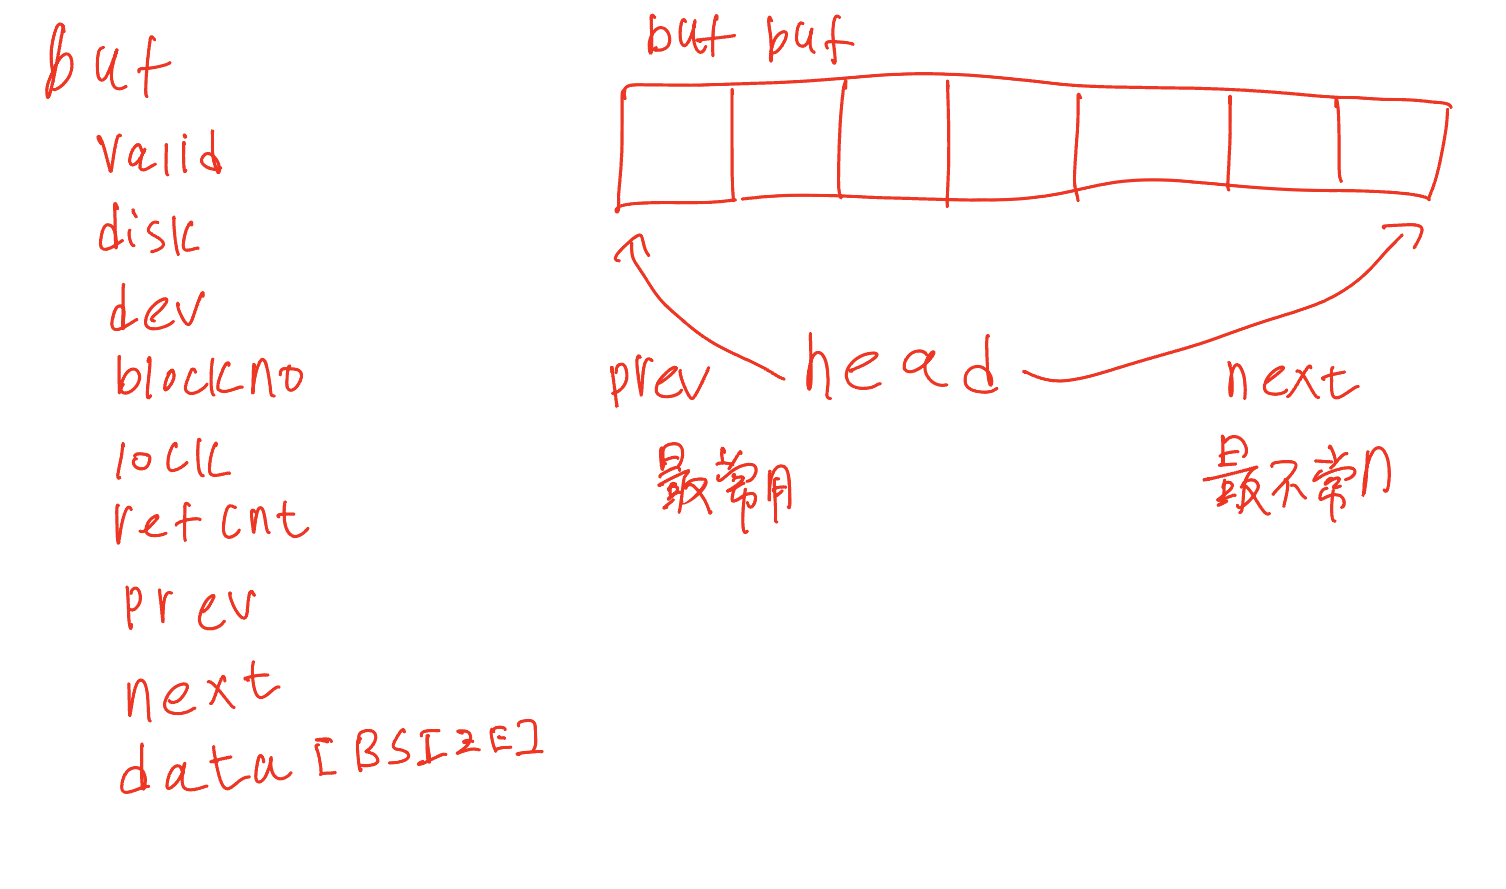 buf
valid
disk
dev
blockno
lock
refcnt
prev
next
data [BSIZE]
buf buf
prev head next
最常用 最不常用